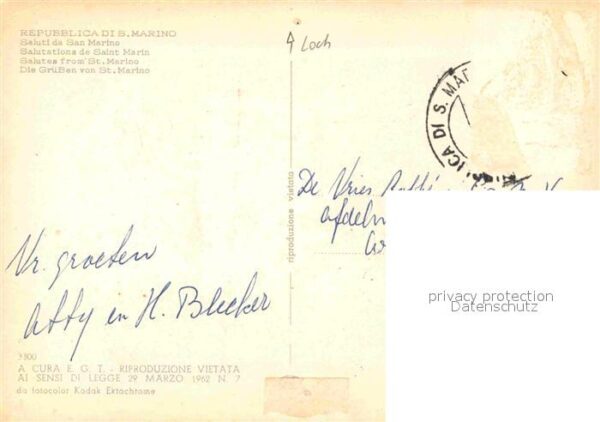 REPUBBLICA DI S. MARINO
Saluti da San Marino
Salutations de Saint Marin
Salutes from St. Marino
Die Grüßen von St. Marino
Loch
ICA DI S. MAR
riproduzione vietata
De Vries
Vr. groeten
Atty en H. Blecker
3300
A CURA E. G. T. - RIPRODUZIONE VIETATA
AI SENSI DI LEGGE 29 MARZO 1962 N. 7
da fotocolor Kodak Ektachrome
privacy protection
Datenschutz